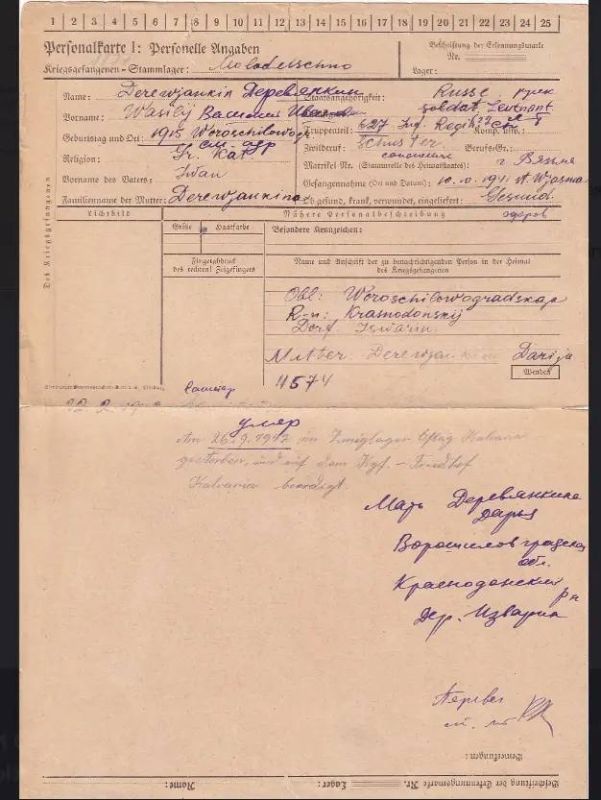 1 2 3 4 5 6 7 8 9 10 11 12 13 14 15 16 17 18 19 20 21 22 23 24 25
Personalkarte I: Personelle Angaben
Kriegsgefangenen-Stammlager: Molodetschno
Beschriftung der Erkennungsmarke
Nr.
Lager:
Des Kriegsgefangenen
Name: Derewjankin Деревянкин
Vorname: Wasilij Василий Иванович
Geburtstag und Ort: 1915 Woroschilowogr.
Religion: Gr. Kat
Vorname des Vaters: Iwan
Familienname der Mutter: Derewjankina
Staatsangehörigkeit: Russe русск
soldat Leitnant
Truppenteil: 627 Inf. Regim. Komp. usw.:
Zivilberuf: Schuster Berufs-Gr.:
сапожник
Matrikel Nr. (Stammrolle des Heimatstaates): г. Вязьма
Gefangennahme (Ort und Datum): 10.10.1941 st. Wjasma
Ob gesund, krank, verwundet, eingeliefert: Gesund
здоров
Lichtbild
Nähere Personalbeschreibung
Größe Haarfarbe
Besondere Kennzeichen:
Fingerabdruck
des rechten! Zeigefingers
Name und Anschrift der zu benachrichtigenden Person in der Heimat
des Kriegsgefangenen
Obl: Woroschilowogradskaja
R-n: Krasnodonskij
Dorf Iswarin
Mutter Derewjankina Darija
11574
Wenden
умер
Am 26.9.1942 im Zweiglager Oflag Kalvaria
gestorben, und auf dem Kgf.-Friedhof
Kalvaria beerdigt.
Мать Деревянкина
Дарья
Ворошиловградская
обл.
Краснодонский
р-н
Дер. Изварин
Перевел
Bemerkungen:
Beschriftung der Erkennungsmarke Nr. Lager: Name: